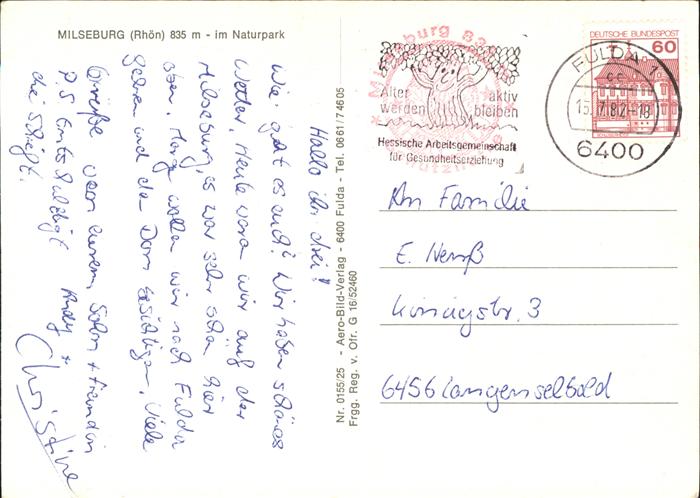 MILSEBURG (Rhön) 835 m - im Naturpark
Hallo ihr drei!
Wie geht es euch? Wir haben schönes
Wetter. Heute waren wir auf der
Milseburg, es war sehr schön hier
oben. Morgen wollen wir nach Fulda
gehen und den Dom besichtigen. Viele
Grüße von eurem Sohn + Freundin
P.S. Andy +
die
Christine
Nr. 0155/25 - Aero-Bild-Verlag - 6400 Fulda - Tel. 0661/74605
Frgg. Reg. v. Ofr. G 16/52460
Milseburg 835
Alter aktiv
werden bleiben
Hessische Arbeitsgemeinschaft
für Gesundheitserziehung
DEUTSCHE BUNDESPOST
60
FULDA 1
cc
15.-7.82-18
6400
An Familie
E. Nenß
Königstr. 3
6456 Langenselbold